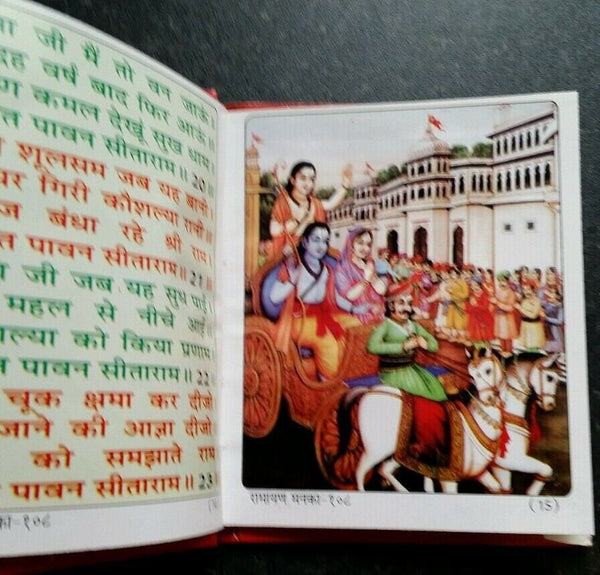 जी मैं तो वन जाऊं।
वर्ष बाद फिर आऊं।
कमल देखूं सुख धाम
पावन सीताराम॥ 20॥
शूलसम जब यह बानी।
गिरी कौशल्या रानी।
बंधा रहे श्री राम।
पावन सीताराम॥ 21॥
जी जब यह सुध पाई।
महल से नीचे आई।
को किया प्रणाम।
पावन सीताराम॥ 22॥
चूक क्षमा कर दीजो।
जाने की आज्ञा दीजो।
को समझाते राम
पावन सीताराम॥ 23॥
-१०८
रामायण मनका-१०८
(15)